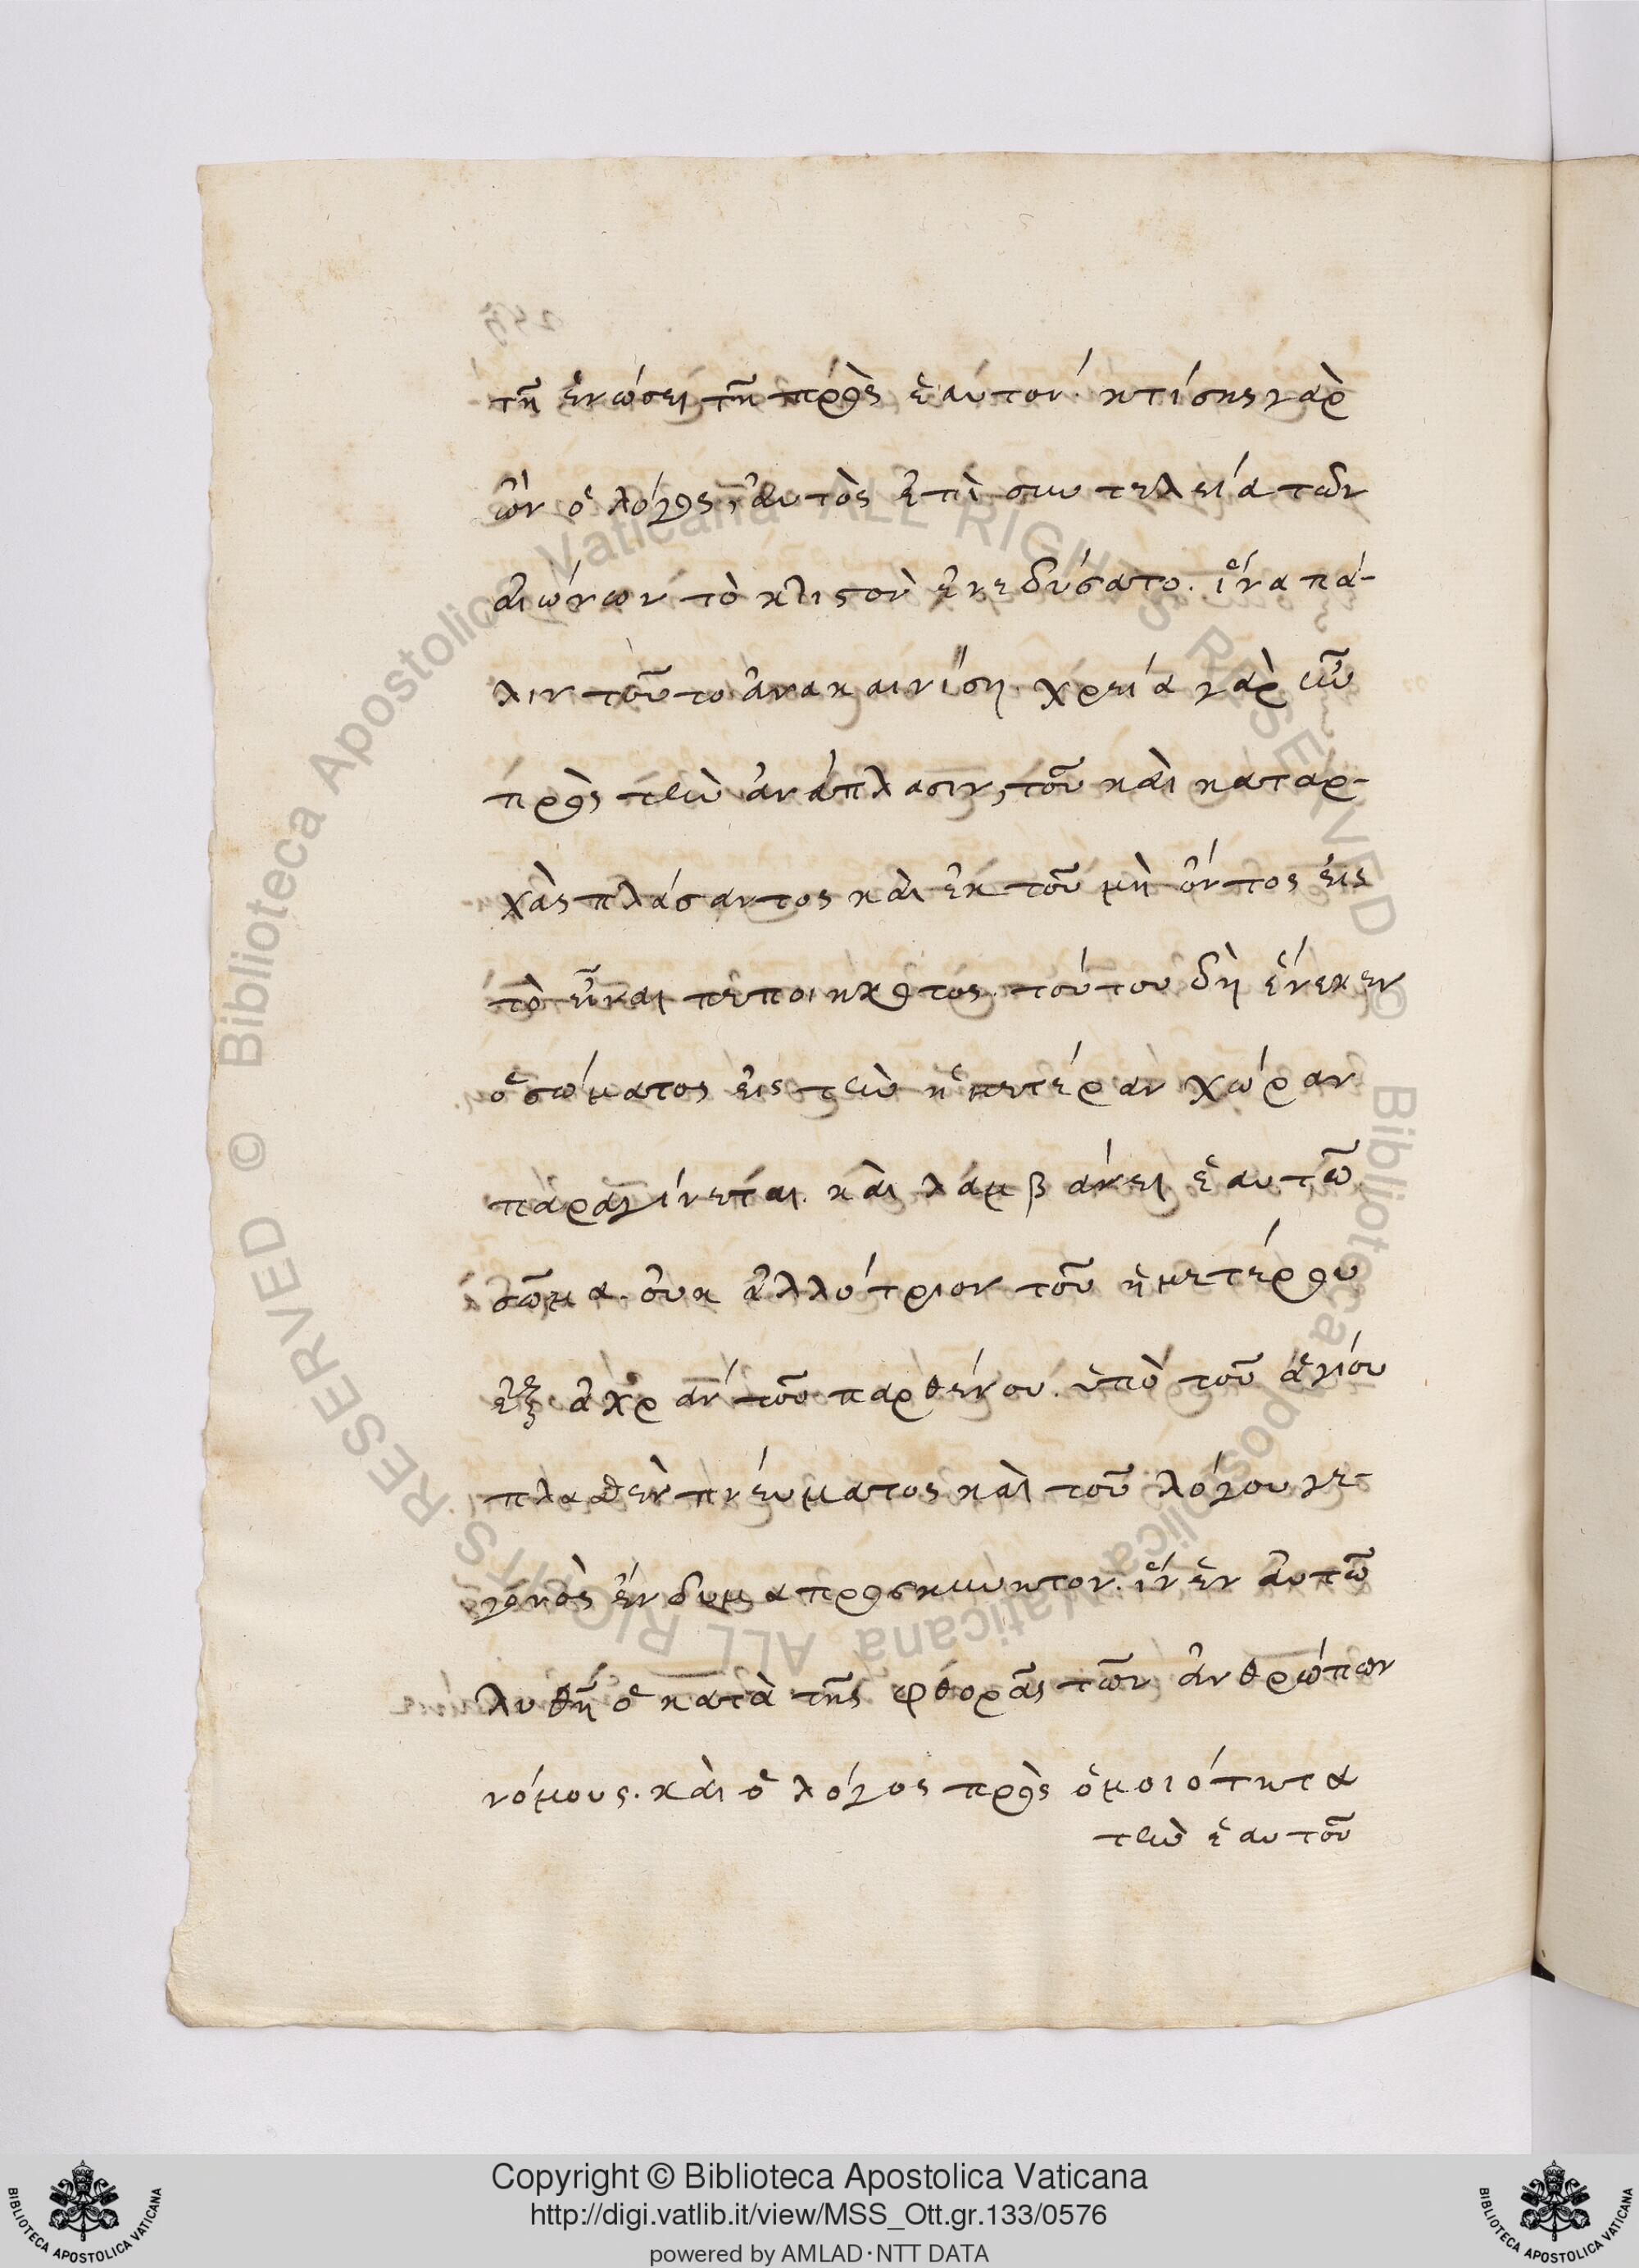 τῆ ἑνώσει τῆ πρὸς ἑαυτόν· κτίσης γὰρ
ὢν ὁ λόγος, αὐτὸς ἐπὶ συντελεία τῶν
αἰώνων τὸ κτιστὸν ἐνεδύσατο. ἵνα πά-
λιν τοῦτο ἀνακαινίση. χρεία γὰρ ἦν
πρὸς τὴν ἀνάπλασιν, τοῦ καὶ καταρ-
χὰς πλάσαντος καὶ ἐκ τοῦ μὴ ὄντος εἰς
τὸ εἶναι πεποικότος. τούτου δὴ ἕνεκεν
ὁ σώματος εἰς τὴν ἡμετέραν χώραν
παραγίνεται. καὶ λαμβάνει ἑαυτῶ
σῶμα. οὐκ ἀλλότριον τοῦ ἡμετέρου
ἐξ ἀχράντου παρθένου. ὑπὸ τοῦ ἁγίου
πλασθὲν πνεύματος καὶ τοῦ λόγου γε-
γονὸς ἔνδυμα προσκυνητον. ἵν ἐν αὐτῶ
λυθῆ ὁ κατὰ τῆς φθορᾶς τῶν ἀνθρώπων
νόμους. καὶ ὁ λόγος πρὸς ὁμοιότητα
τὴν ἑαυτοῦ
Copyright © Biblioteca Apostolica Vaticana
http://digi.vatlib.it/view/MSS_Ott.gr.133/0576
powered by AMLAD·NTT DATA
BIBLIOTECA APOSTOLICA VATICANA
BIBLIOTECA APOSTOLICA VATICANA
© Biblioteca Apostolica Vaticana ALL RIGHTS RESERVED
© Biblioteca Apostolica Vaticana ALL RIGHTS RESERVED